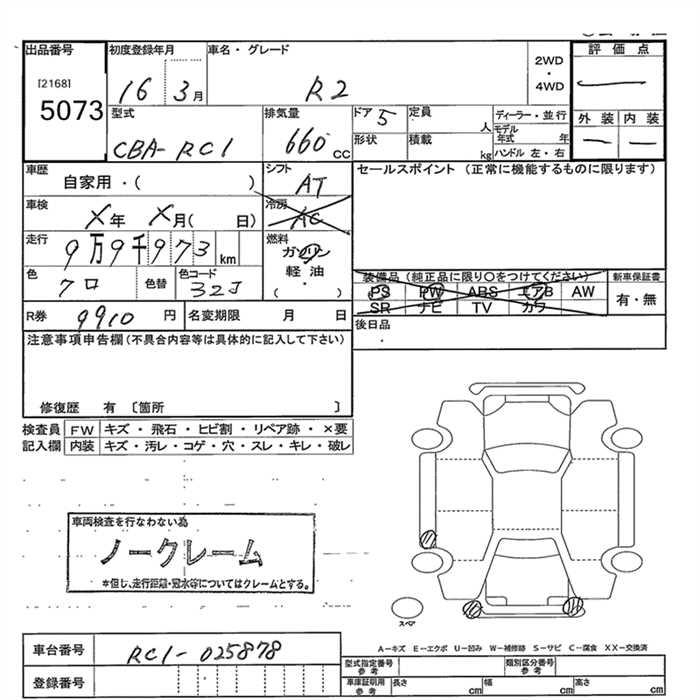 出品番号
[2168]
5073
初度登録年月
16 3月
車名・グレード
R2
2WD
・
4WD
評価点
外装 内装
型式
CBA-RC1
排気量
660 cc
ドア 5
定員
人
形状
積載
kg
ディーラー・並行
モデル年式 年
ハンドル 左・右
車歴
自家用・( )
シフト
AT
セールスポイント (正常に機能するものに限ります)
車検
X年 X月( 日)
冷房
AC
走行
9万9千973 km
燃料
ガソリン
軽油
( ・ )
色
クロ
色替
色コード
32J
装備品 (純正品に限り○をつけてください)
PS PW ABS エアB AW
SR ナビ TV カワ
新車保証書
有・無
R券 9910 円
名変期限 月 日
後日品
注意事項申告欄 (不具合内容等は具体的に記入して下さい)
修復歴 有 [箇所 ]
検査員
記入欄
FW キズ・飛石・ヒビ割・リペア跡・×要
内装 キズ・汚レ・コゲ・穴・スレ・キレ・破レ
車両検査を行なわない為
ノークレーム
*但し、走行距離・冠水等についてはクレームとする。
スペア
A-キズ E-エクボ U-凹み W-補修跡 S-サビ C-腐食 XX-交換済
車台番号 RC1-025878
登録番号
型式指定番号
参考
類別区分番号
参考
車庫証明用
参考
長さ cm 幅 cm 高さ cm